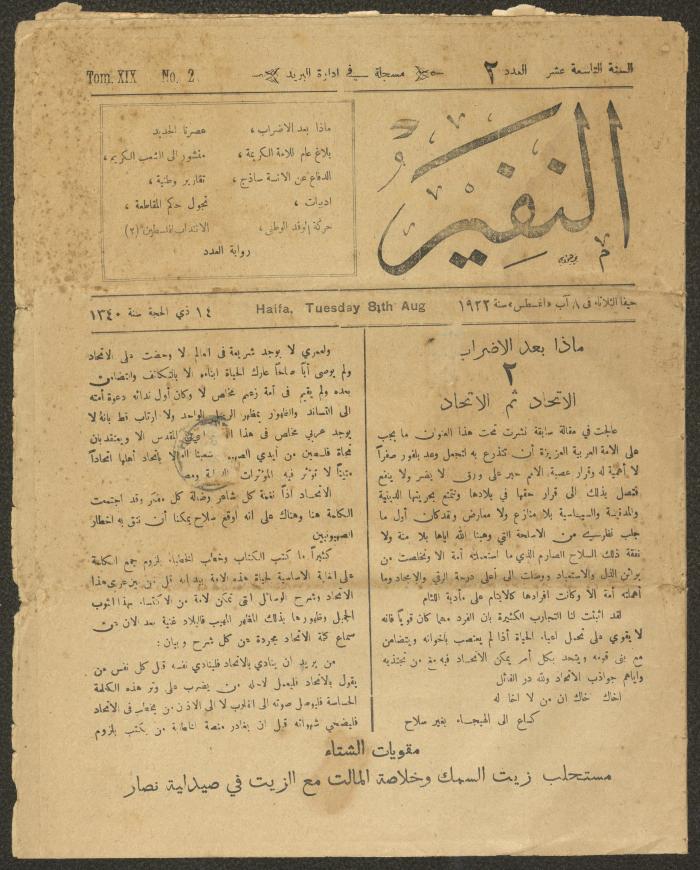 السنة التاسعة عشر العدد ٢
مسجلة في ادارة البريد
Tom. XIX No. 2
النفير
ماذا بعد الاضراب ، عصرنا الجديد
بلاغ عام للامة الكريمة ، منشور الى الشعب الكريم ،
الدفاع عن الانسة ساذج ، تقارير وطنية ،
ادبيات ، تجول حكم المقاطعة ،
حركة الوفد الوطني ، الانتداب لفلسطين (٢)
رواية العدد
حيفا الثلاثاء في ٨ آب «اغسطس» سنة ١٩٢٢
Haifa, Tuesday 8th Aug
١٤ ذي الحجة سنة ١٣٤٠
ماذا بعد الاضراب
٢
الاتحاد ثم الاتحاد
عالجت في مقالة سابقة نشرت تحت هذا العنوان ما يجب
على الامة العربية العزيزة أن تتذرع به لتجمل وعد بلفور صفراً
لا أهمية له وقرار عصبة الامم حبر على ورق لا يضر ولا ينفع
فتصل بذلك الى قرار حقها في بلادها وتتمتع بحريتها الدينية
والمدنية والسياسية بلا منازع ولا معارض وقد كان أول ما
جلب نظري من الاسلحة التي وهبنا الله اياها بلا منة ولا
نفقة ذلك السلاح الصارم الذي ما استعملته أمة الا وتخلصت من
براثن الذل والاستعباد ووصلت الى أعلى درجة الرقي والاتحاد وما
أهملته أمة الا وكانت افرادها كالايتام على مأدبة اللئام
لقد اثبتت لنا التجارب الكثيرة بان الفرد مهما كان قوياً فانه
لا يقوى على تحمل اعباء الحياة أذا لم يعتصب باخوانه ويتضامن
مع بني قومه ويتحد بكل أمر يمكن الاتحاد فيه مع من تجتذبه
واياهم جواذب الاتحاد ولله در القائل
اخاك اخاك ان من لا اخا له
كساع الى الهيجاء بغير سلاح
ولعمري لا يوجد شريعة في العالم الا وحضت على الاتحاد
ولم يوصي أباً صالحاً عارك الحياة ابناءه الا بالتكاتف والتضامن
بعده ولم يقيم في أمة زعيم مخلص الا وكان أول ندائه دعوة أمته
الى التساند والظهور بمظهر الرجل الواحد ولا ارتاب قط بانه لا
يوجد عربي مخلص في هذا القدس الا ويعتقد بان
نجاة فلسطين من أيدي الا باتحاد أهلها اتحاداً
متيناً لا تؤثر فيه المؤثرات
الاتحاد اذاً نغمة كل شاعر وضالة كل مفكر وقد اجتمعت
الكلمة هنا وهناك على انه أوقع سلاح يمكننا أن نتقي به اخطار
الصهيونيين
كثيراً ما كتب الكتاب وخطب الخطباء بلزوم جمع الكلمة
على الغاية الاساسية لحياة هذه الامة بيد انه قل من بين عرى هذا
الاتحاد وشرح الوسائل التي تمكن الامة من الاكتساء بهذا الثوب
الجميل وظهورها بذلك المظهر المهيب فالبلاد غنية بعد الان من
سماع كلمة الاتحاد مجردة عن كل شرح وبيان :
من يريد ان ينادي بالاتحاد فلينادي نفسه قبل كل نفس من
يقول بالاتحاد فليعمل لاجله من يضرب على وتر هذه الكلمة
الحساسة فليوصل صوته الى القلوب لا الى الاذن من يخطب في الاتحاد
فليضحي شهواته قبل ان يغادر منصة الخطابة من يكتب بلزوم
مقويات الشتاء
مستحلب زيت السمك وخلاصة المالت مع الزيت في صيدلية نصار